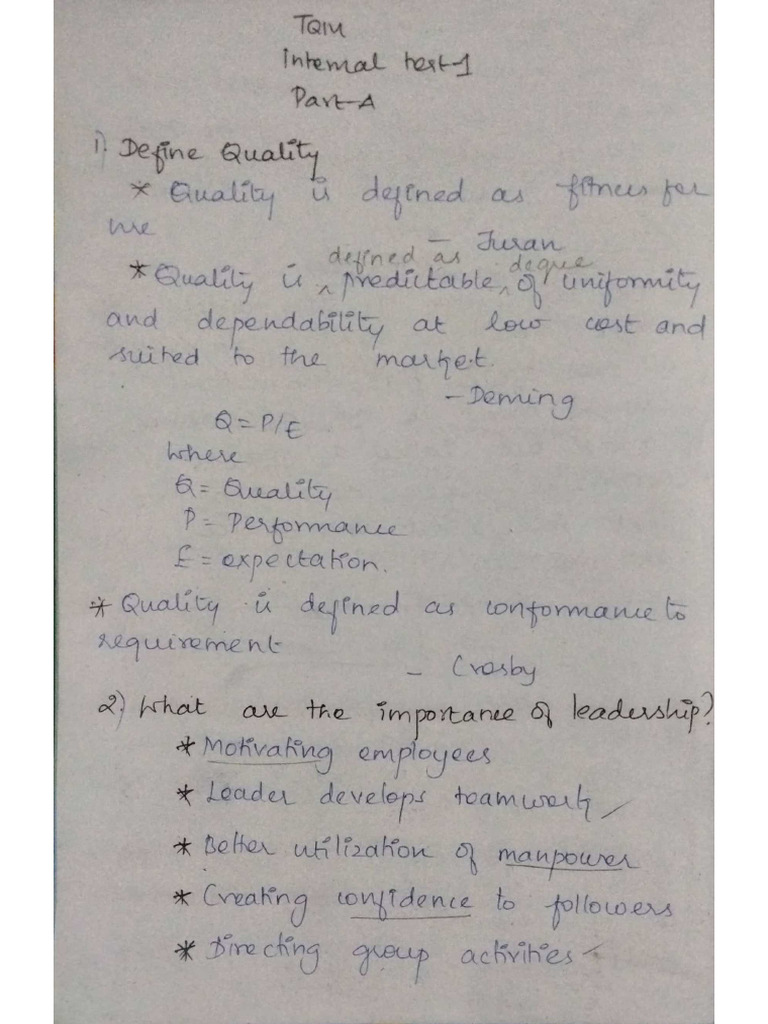 TQM
Internal test-1
Part-A
1) Define Quality
* Quality is defined as fitness for
use
- Juran
* Quality is defined as predictable degree of uniformity
and dependability at low cost and
suited to the market.
- Deming
Q = P/E
where
Q = Quality
P = Performance
E = expectation.
* Quality is defined as conformance to
requirement
- Crosby
2) What are the importance of leadership?
* Motivating employees
* Leader develops teamwork
* Better utilization of manpower
* Creating confidence to followers
* Directing group activities